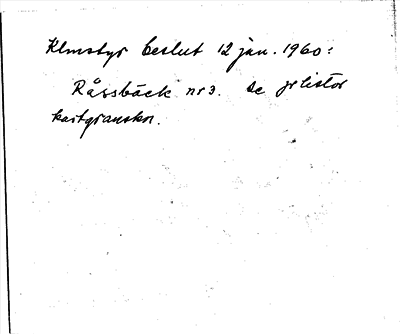 Klmstyr beslut 12 jan. 1960:
Råssbäck nr 3. Se jrlistor
kartgranskn.